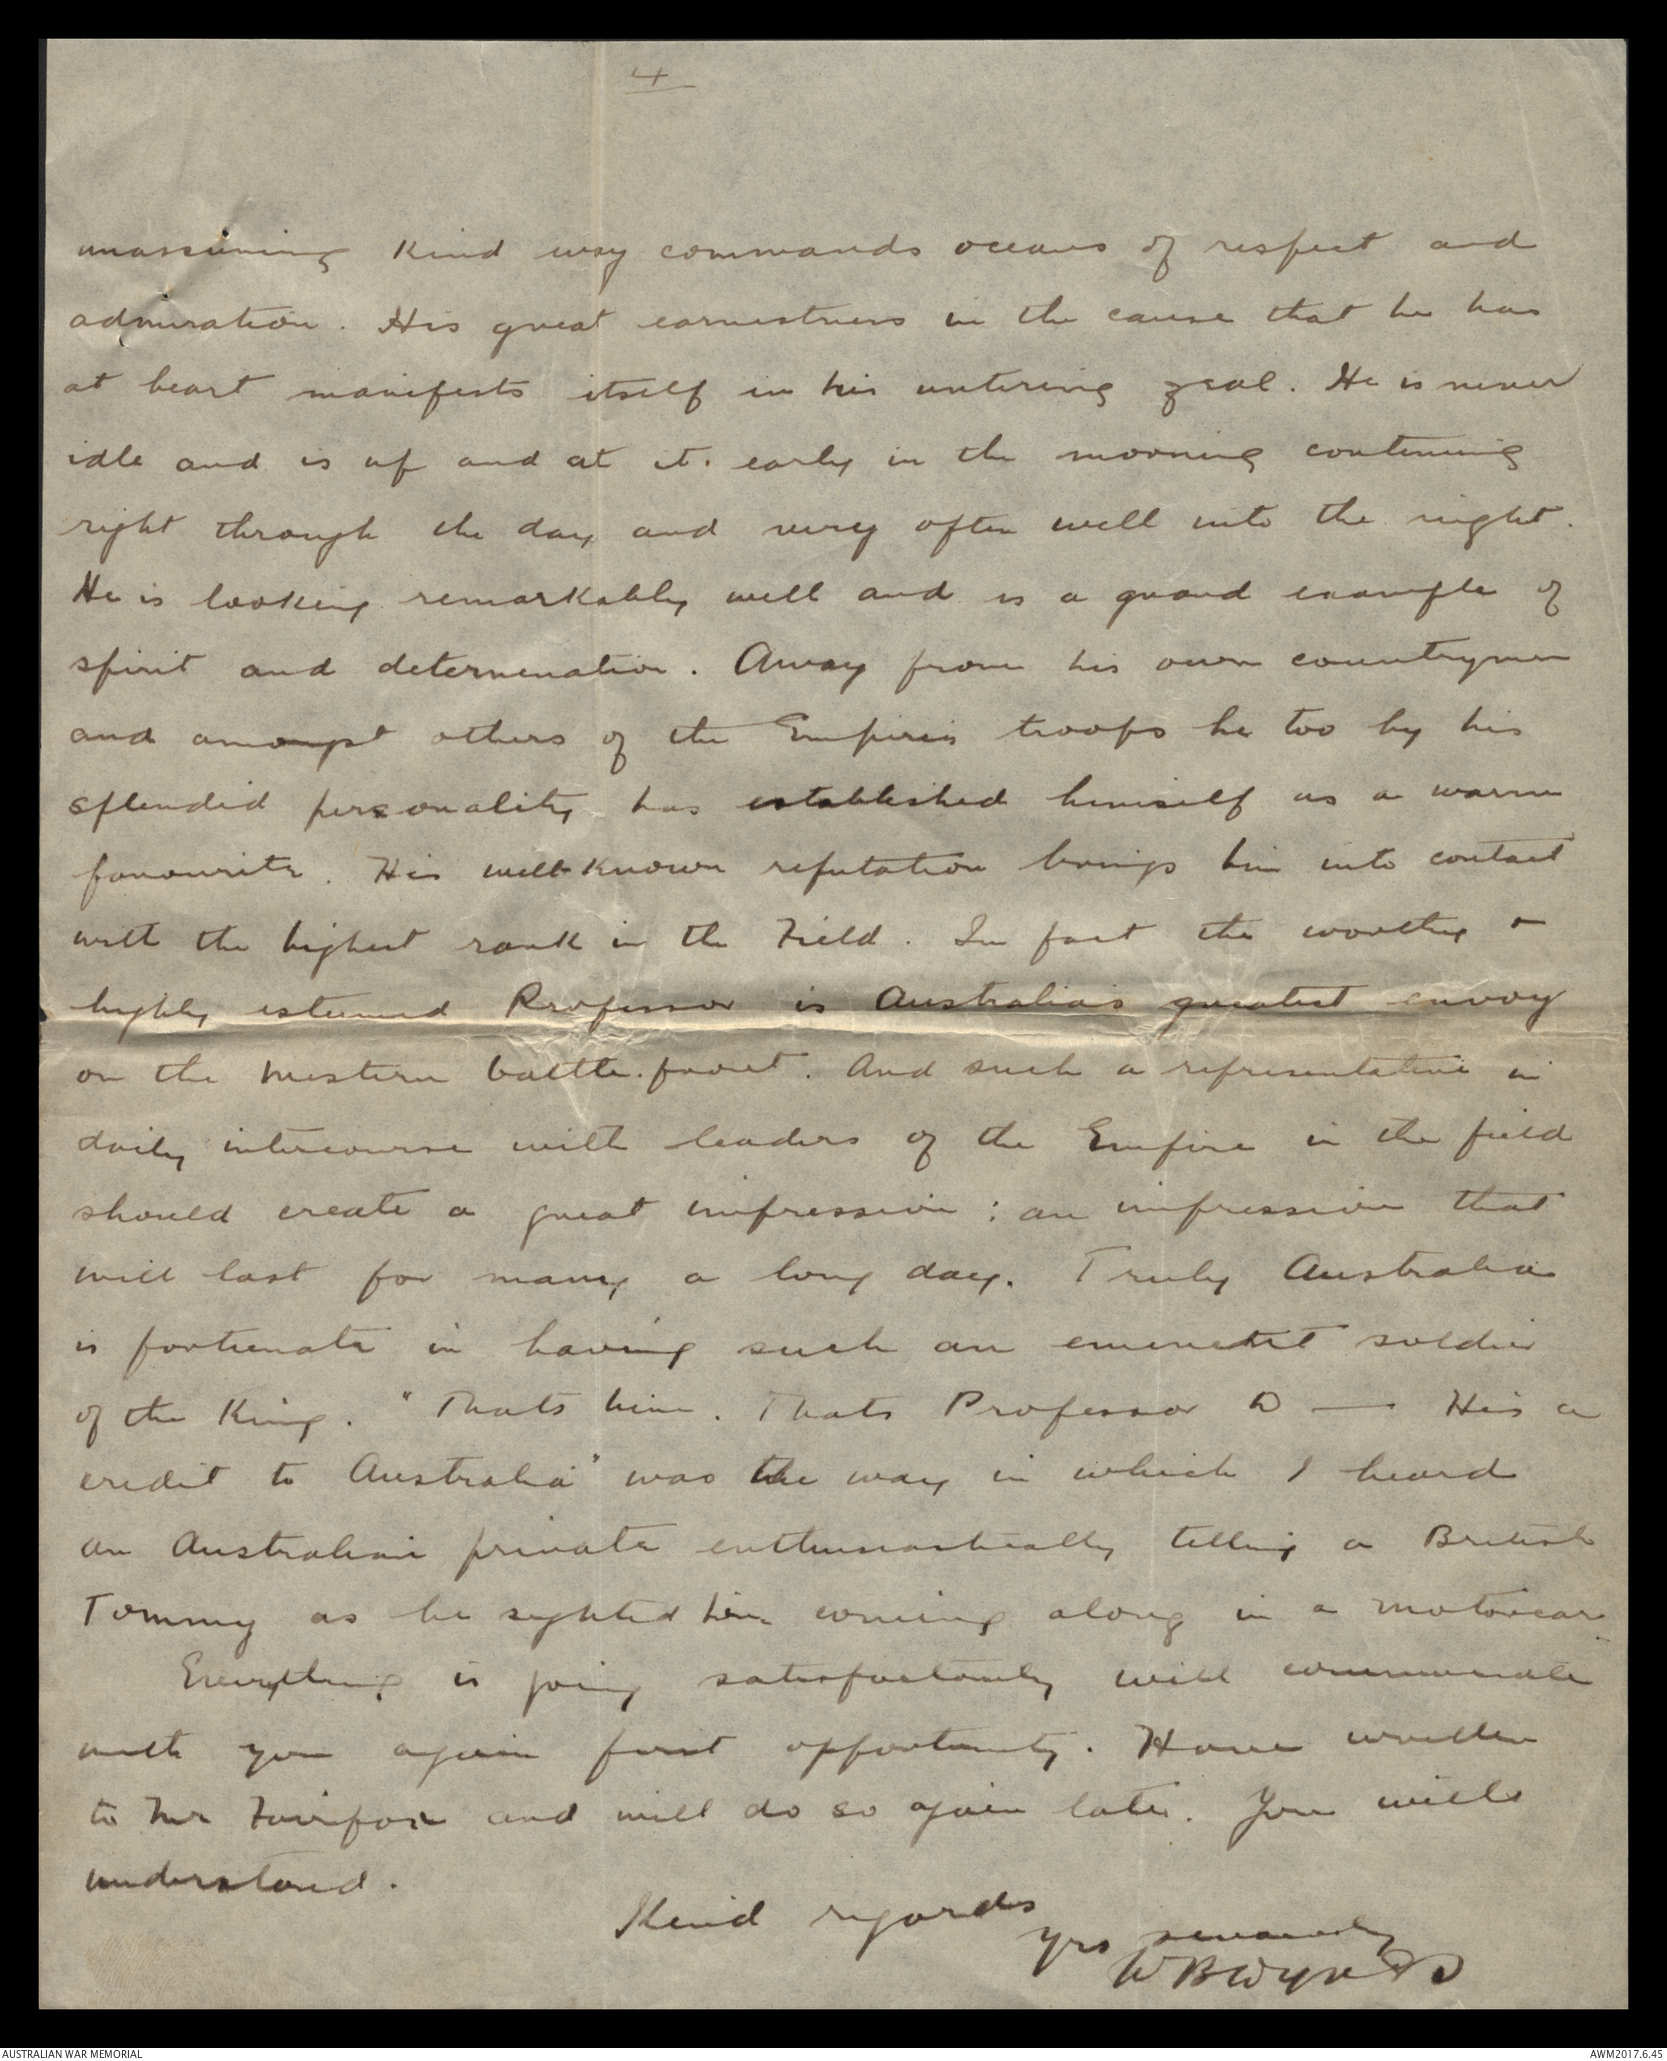 4
unassuming kind way commands oceans of respect and
admiration. His great earnestness in the cause that he has
at heart manifests itself in his untiring zeal. He is never
idle and is up and at it. early in the morning continuing
right through the day and very often well into the night.
He is looking remarkably well and is a grand example of
spirit and determination. Away from his own countrymen
and amongst others of the Empires troops he too by his
splendid personality has established himself as a warm
favourite. His well-known reputation brings him into contact
with the highest rank in the Field. In fact the worthy &
highly esteemed Professor is Australia's greatest envoy
on the Western battle-front. And such a representative in
daily intercourse with leaders of the Empire in the field
should create a great impression: an impression that
will last for many a long day. Truly Australia
is fortunate in having such an eminent soldier
of the King. "Thats him. Thats Professor D — His a
credit to Australia" was the way in which I heard
an Australian private enthusiastically telling a British
Tommy as he sighted him coming along in a motorcar.
Everything is going satisfactorily will
with you again first opportunity. Have written
to Mr Fairfax and will do so again later. You will
understand.
Kind regards
yrs sincerely
AUSTRALIAN WAR MEMORIAL
AWM2017.6.45